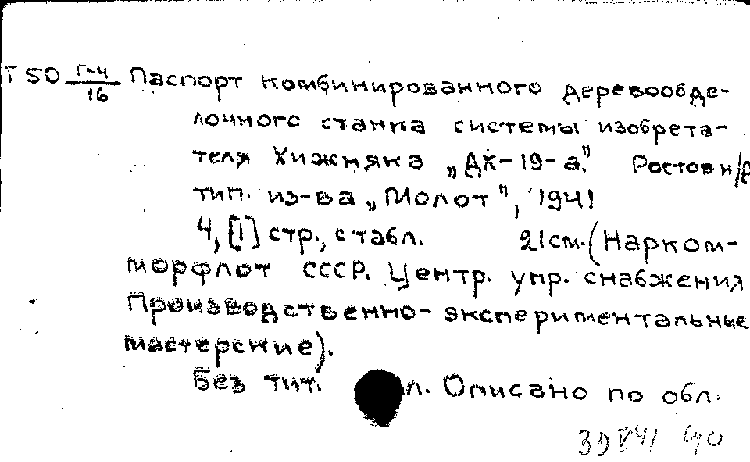 Т50 Г-4/16 Паспорт комбинированного деревообде-
лочного станка системы изобрета-
теля Хижняка „ДК-19-а." Ростов н/Д
тип. из-ва „Молот", 1941
4, [1] стр., с табл. 21см. (Нарком-
морфлот СССР. Центр. упр. снабжения
Производственно-экспериментальные
мастерские).
Без тит. л. Описано по обл.